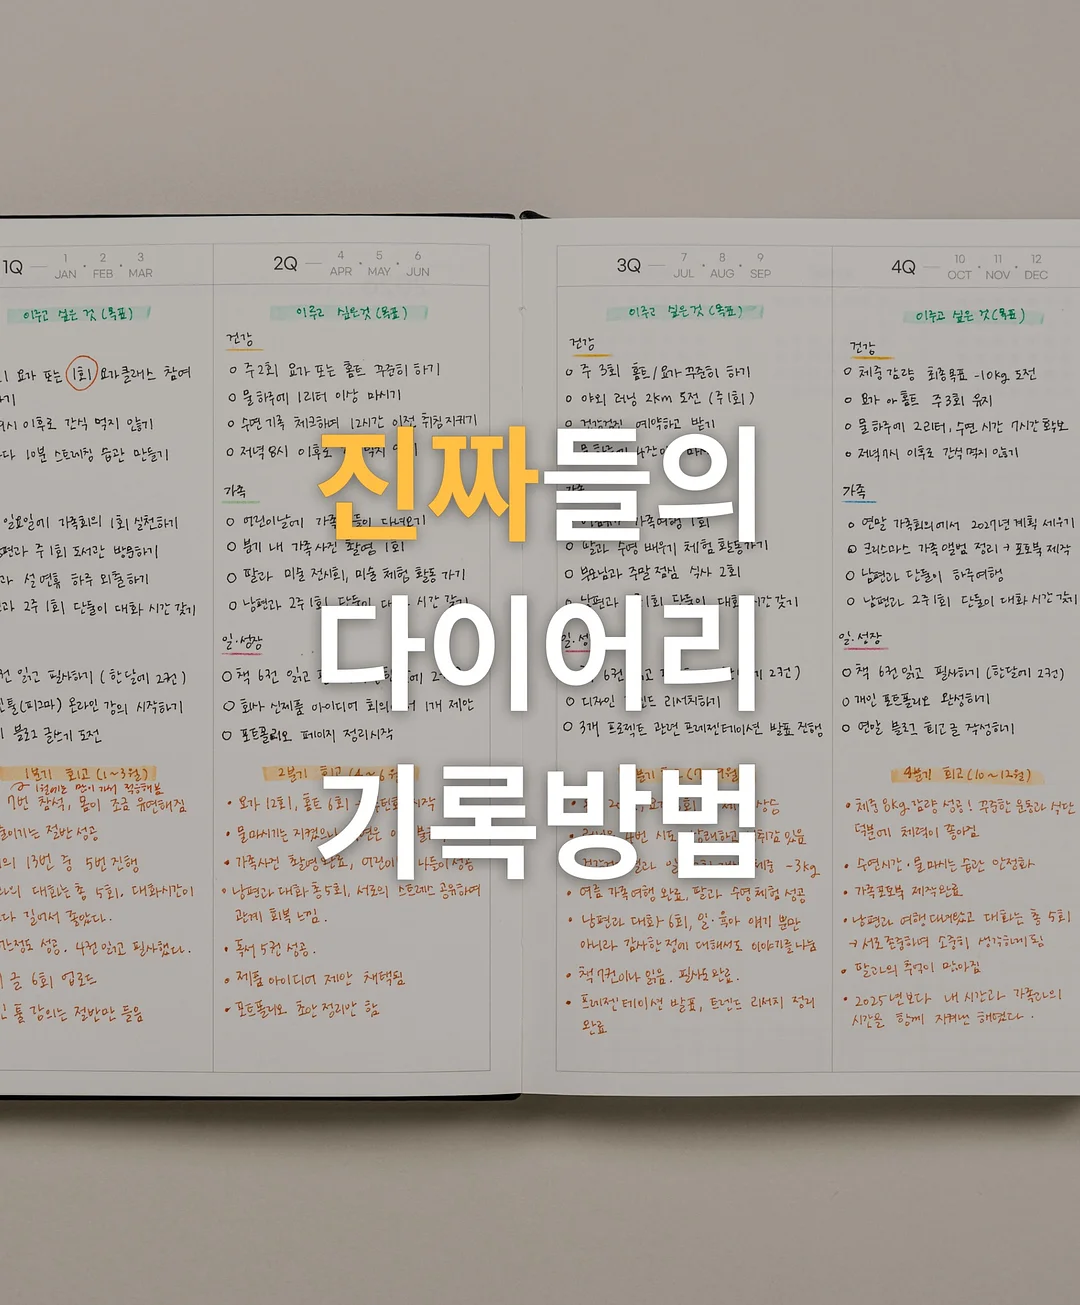 진짜들의
다이어리
기록방법
1Q — 1 JAN · 2 FEB · 3 MAR
이루고 싶은 것 (목표)
요가 또는 1회 요가클래스 참여
하기
이후로 간식 먹지 않기
10분 스트레칭 습관 만들기
일요일에 가족회의 1회 실천하기
주 1회 도서관 방문하기
설 연휴 하루 외출하기
2주 1회 단둘이 대화 시간 갖기
읽고 필사하기 (한달에 2권)
툴(피그마) 온라인 강의 시작하기
블로그 글쓰기 도전
1분기 회고 (1~3월)
7번 참석, 몸이 조금 유연해짐
줄이기는 절반 성공
13번 중 5번 진행
대화는 총 5회, 대화시간이
길어서 좋았다.
성공. 4권 읽고 필사했다.
글 6회 업로드
툴 강의는 절반만 들음
2Q — 4 APR · 5 MAY · 6 JUN
이루고 싶은 것 (목표)
건강
○ 주 2회 요가 또는 홈트 꾸준히 하기
○ 물 하루에 1리터 이상 마시기
○ 수면 기록 체크하며 12시간 이전 취침 지키기
○ 저녁 8시 이후로
가족
○ 어린이날에 가족 다녀오기
○ 분기 내 가족사진 촬영 1회
○ 딸과 미술 전시회, 미술 체험 활동 가기
○ 남편과 2주 1회 단둘이 대화 시간 갖기
일·성장
○ 책 6권 읽고
○ 회사 신제품 아이디어 회의에서 1개 제안
○ 포트폴리오 페이지 정리 시작
2분기 회고 (4~6월)
• 요가 12회, 홈트 6회 시작
• 물 마시기는 지켰으나
• 가족사진 촬영 완료, 나들이 성공
• 남편과 대화 총 5회, 서로의 스트레스 공유하며
관계 회복 느낌.
• 독서 5권 성공.
• 제품 아이디어 제안 채택됨
• 포트폴리오 초안 정리만 함
3Q — 7 JUL · 8 AUG · 9 SEP
이루고 싶은 것 (목표)
건강
○ 주 3회 홈트/요가 꾸준히 하기
○ 야외 러닝 2km 도전 (주 1회)
○ 건강검진 예약하고 받기
가족
가족여행 1회
○ 딸과 수영 배우기 체험 활동가기
○ 부모님과 주말 점심 식사 2회
○ 남편과 1회 단둘이 대화 시간 갖기
일·성장
6권 읽고 2권)
○ 디자인 트렌드 리서치하기
○ 3개 프로젝트 관련 프레젠테이션 발표 진행
• 여름 가족여행 완료, 딸과 수영체험 성공
• 남편과 대화 6회, 일·육아 얘기 뿐만
아니라 감사한 점에 대해서도 이야기를 나눔
• 책 7권이나 읽음. 필사도 완료.
• 프레젠테이션 발표, 트렌드 리서치 정리
완료
4Q — 10 OCT · 11 NOV · 12 DEC
이루고 싶은 것 (목표)
건강
○ 체중 감량 최종목표 -10kg 도전
○ 요가 아 홈트 주 3회 유지
○ 물 하루에 2리터, 수면 시간 7시간 확보
○ 저녁 7시 이후로 간식 먹지 않기
가족
○ 연말 가족회의에서 2027년 계획 세우기
○ 크리스마스 가족 앨범 정리 → 포토북 제작
○ 남편과 단둘이 하루여행
○ 남편과 2주 1회 단둘이 대화 시간 갖기
일·성장
○ 책 6권 읽고 필사하기 (한달에 2권)
○ 개인 포트폴리오 완성하기
○ 연말 블로그 회고 글 작성하기
4분기 회고 (10~12월)
• 체중 8kg 감량 성공! 꾸준한 운동과 식단
덕분에 체력이 좋아짐
• 수면시간·물 마시는 습관 안정화
• 가족포토북 제작완료
• 남편과 여행 다녀왔고 대화는 총 5회
→ 서로 존중하며 소중히 생각하게 됨
• 딸과의 추억이 많아짐
• 2025년보다 내 시간과 가족과의
시간을 함께 지켜낸 해였다.